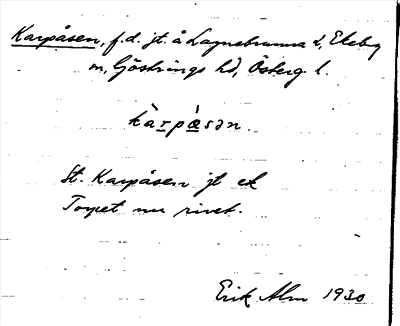 Karpåsen, f.d. jt. å Lagnebrunna s, Ekeby
sn, Göstrings hd, Österg. l.
kàrpåsən.
St. Karpåsen jt ek
Torpet nu rivet.
Erik Alm 1930